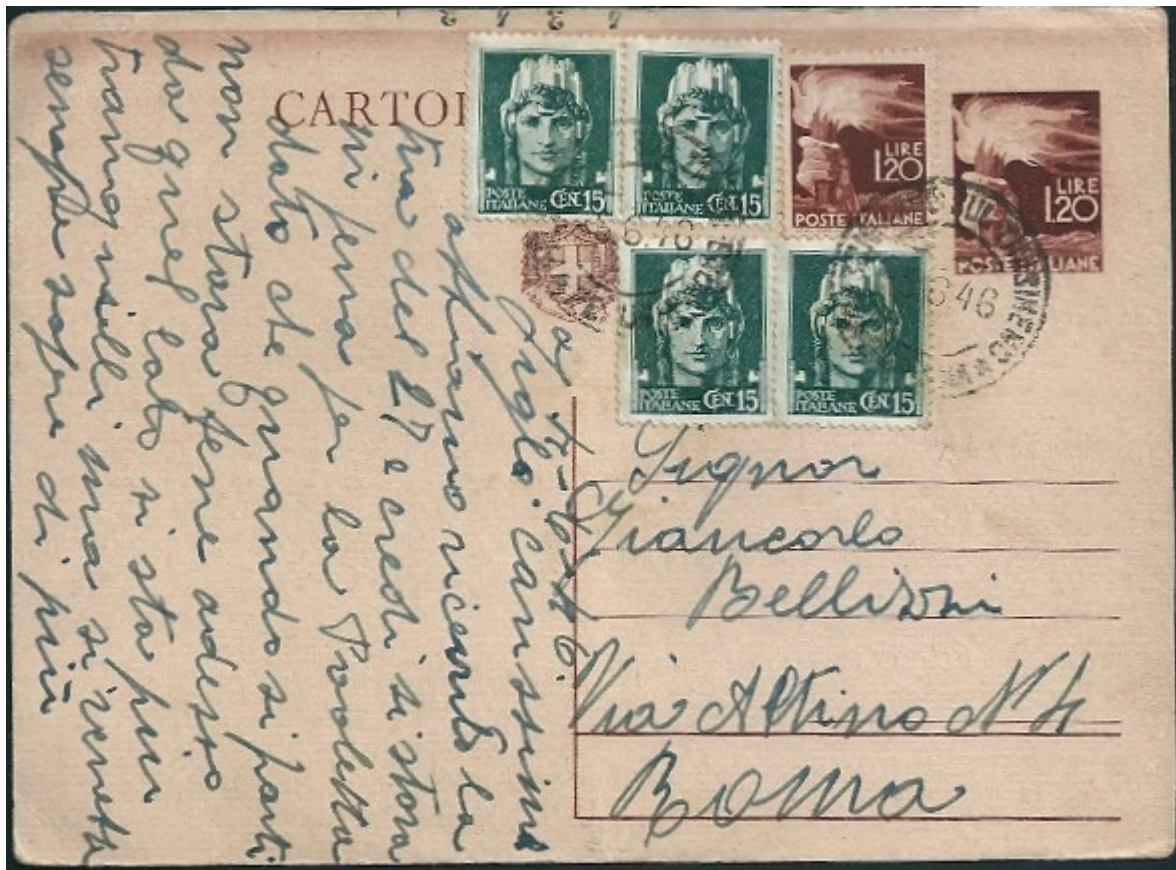 CARTOL
POSTE ITALIANE CENT. 15
POSTE ITALIANE CENT. 15
LIRE 1.20
POSTE ITALIANE
LIRE 1.20
POSTE ITALIANE
POSTE ITALIANE CENT. 15
POSTE ITALIANE CENT. 15
6.46
Signor
Giancarlo
Bellizzi
Via Altino N 4
Roma
Figlo carissimo
ricevuto la
tua del 27 e credi si stava
in pena per la
dato che quando si partì
non stava bene adesso
da quel lato si sta più
tranquilli ma si
sempre sapere di più